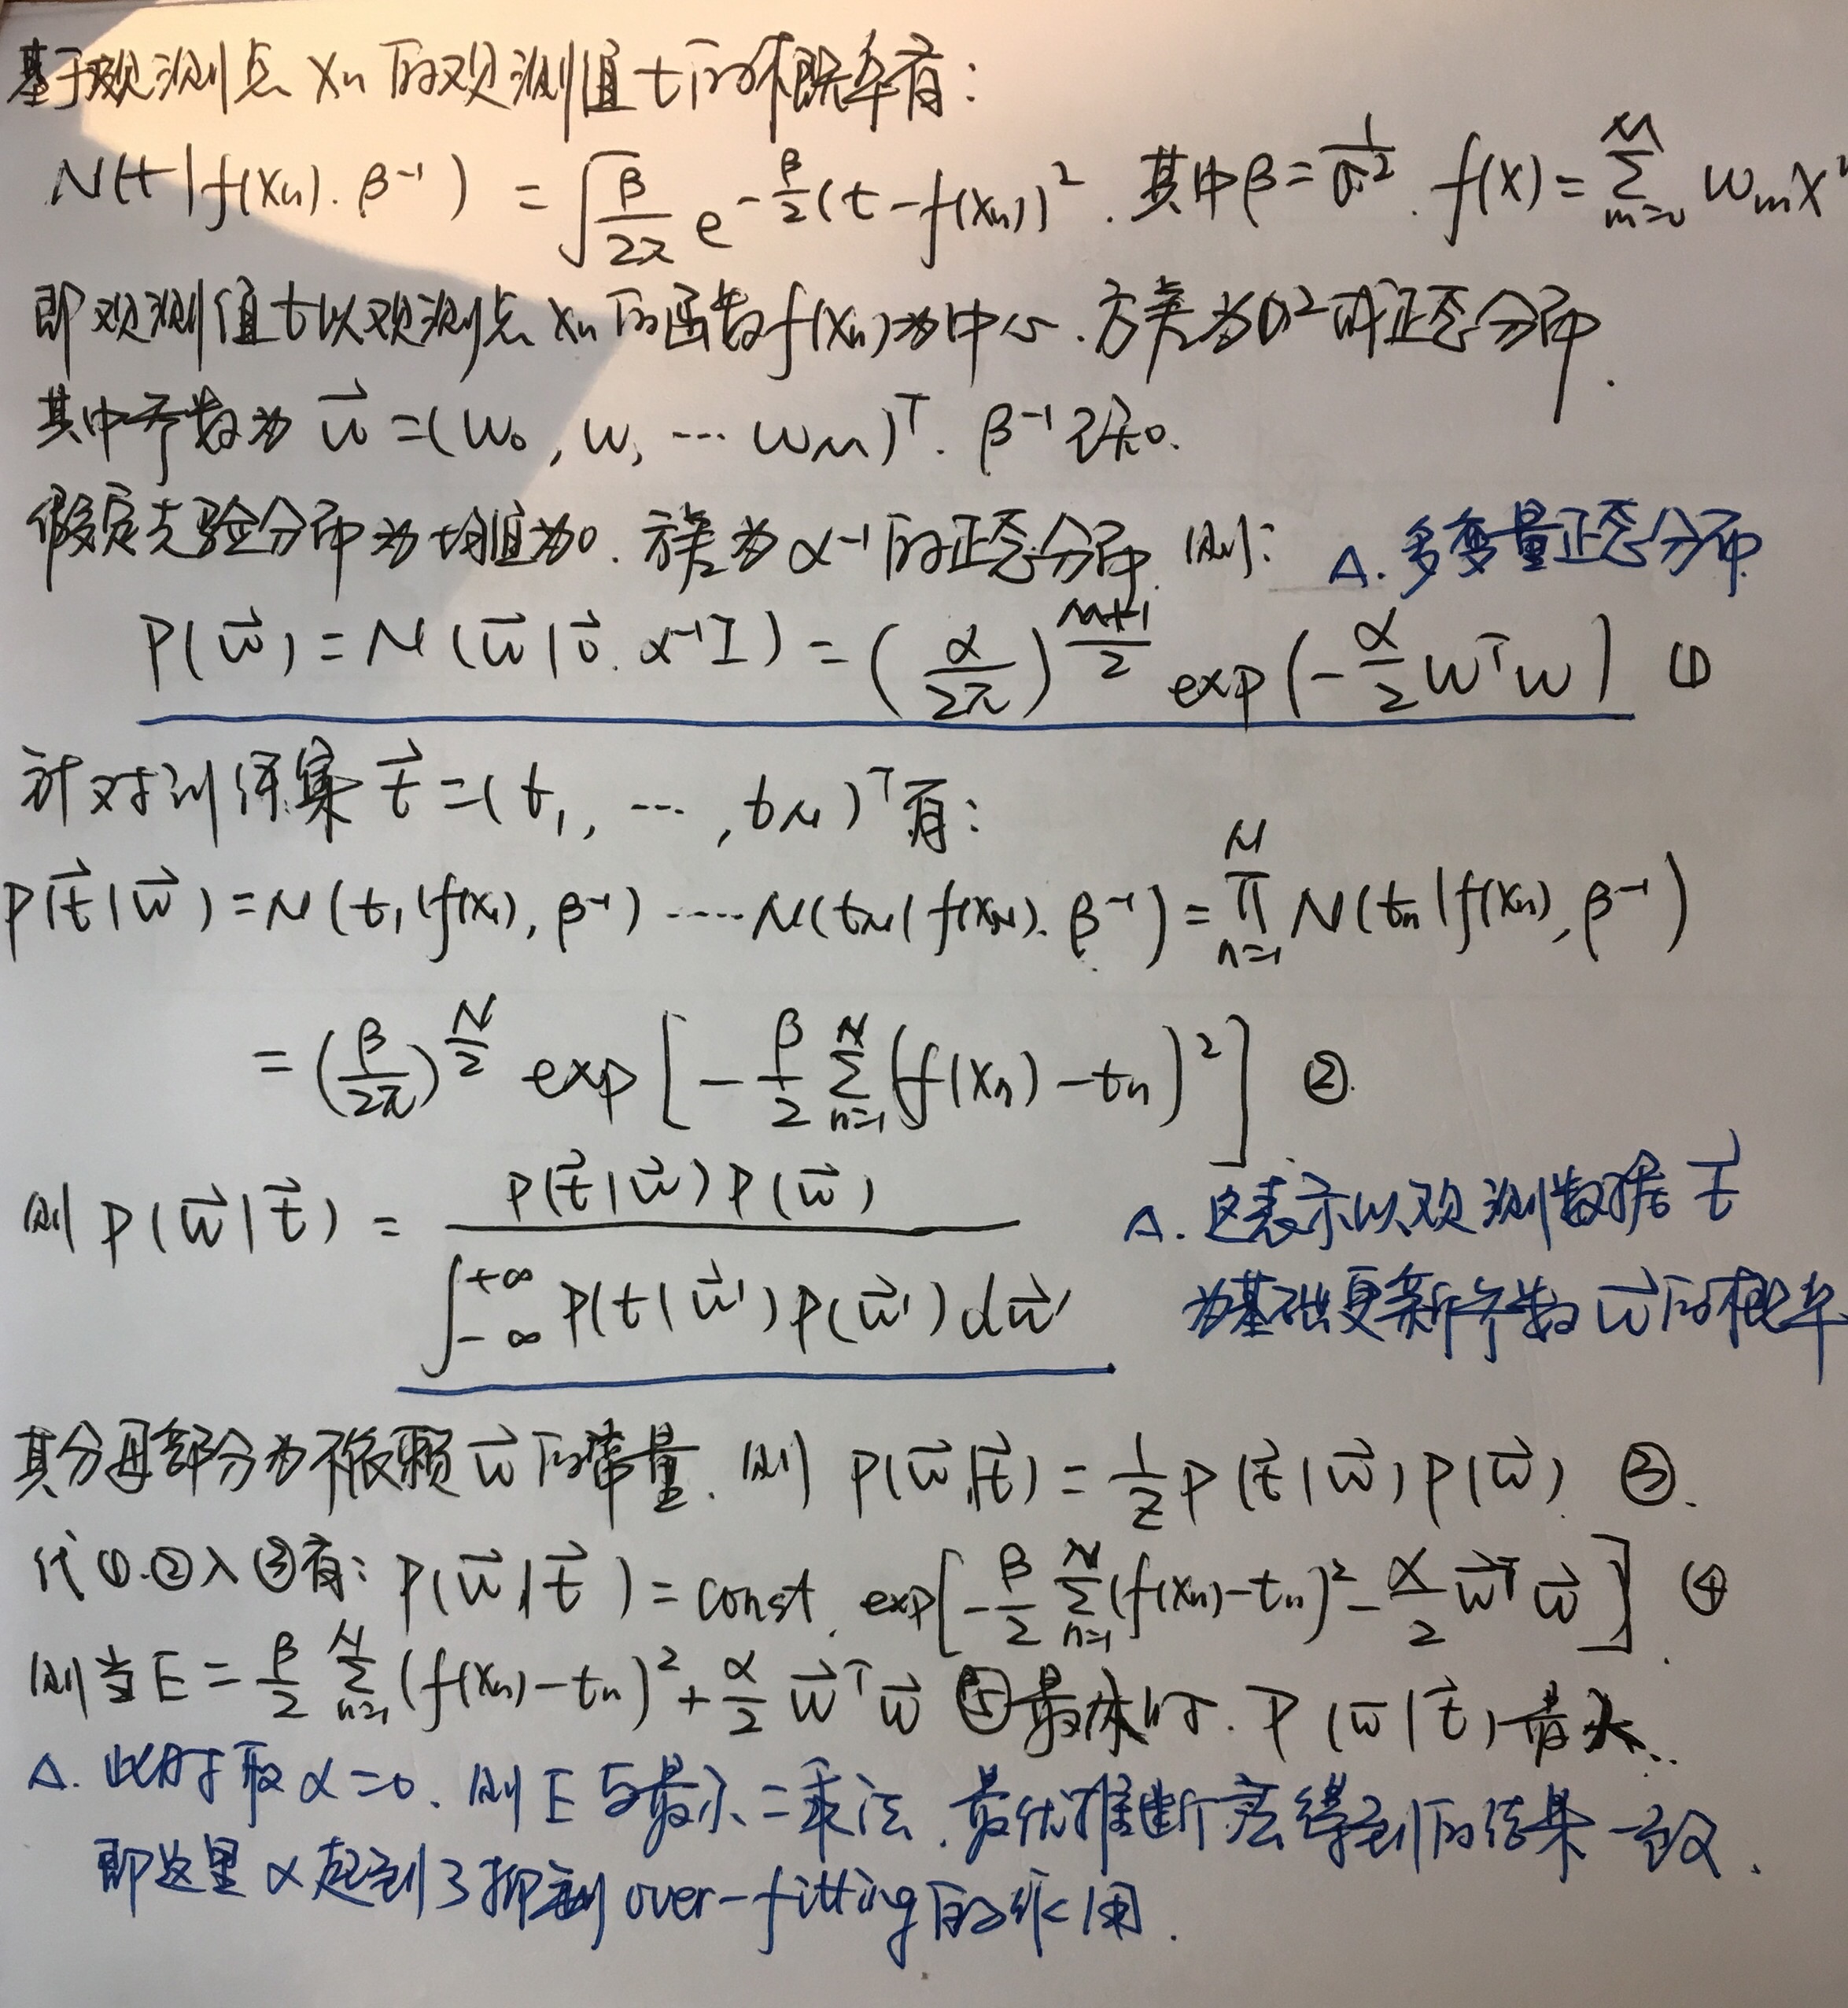 基于观测点 xn 的观测值 t 的概率有:
N(t|f(xn), β⁻¹) = √(β/2π) e^{-β/2 (t-f(xn))²}. 其中β=1/σ². f(x)=∑_{m=0}^{M} wm x
即观测值t以观测点 xn 的函数f(xn)为中心.方差为σ²成正态分布.
其中参数为 w⃗=(w₀, w₁ ⋯ wM)ᵀ. β⁻¹已知.
假定先验分布为均值为0.方差为α⁻¹的正态分布.则: △.多变量正态分布
P(w⃗)=N(w⃗|0⃗.α⁻¹I)=(α/2π)^{(M+1)/2} exp(-α/2 wᵀw) ①
针对训练集 t⃗=(t₁, ⋯, tN)ᵀ有:
P(t⃗|w⃗)=N(t₁|f(x₁), β⁻¹)⋯⋯N(tN|f(xN).β⁻¹)=∏_{n=1}^{N} N(tn|f(xn), β⁻¹)
=(β/2π)^{N/2} exp[-β/2 ∑_{n=1}^{N}(f(xn)-tn)²] ②.
则 P(w⃗|t⃗) = P(t⃗|w⃗)P(w⃗) / ∫_{-∞}^{+∞} P(t|w⃗')P(w⃗')dw⃗'
△.这表示以观测数据 t⃗
为基础更新参数 w⃗ 的概率.
其分母部分为不依赖 w⃗ 的常量.则 P(w⃗|t⃗)=1/Z P(t⃗|w⃗)P(w⃗) ③.
代①.②入③有: P(w⃗|t⃗)=const. exp[-β/2 ∑_{n=1}^{N}(f(xn)-tn)²-α/2 w⃗ᵀw⃗] ④
则当E=β/2 ∑_{n=1}^{N}(f(xn)-tn)²+α/2 w⃗ᵀw⃗ ⑤最小时.P(w⃗|t⃗)最大.
△.此时取α=0.则E与最小二乘法.最优推断法得到的结果一致.
即这里α起到了抑制over-fitting的作用.